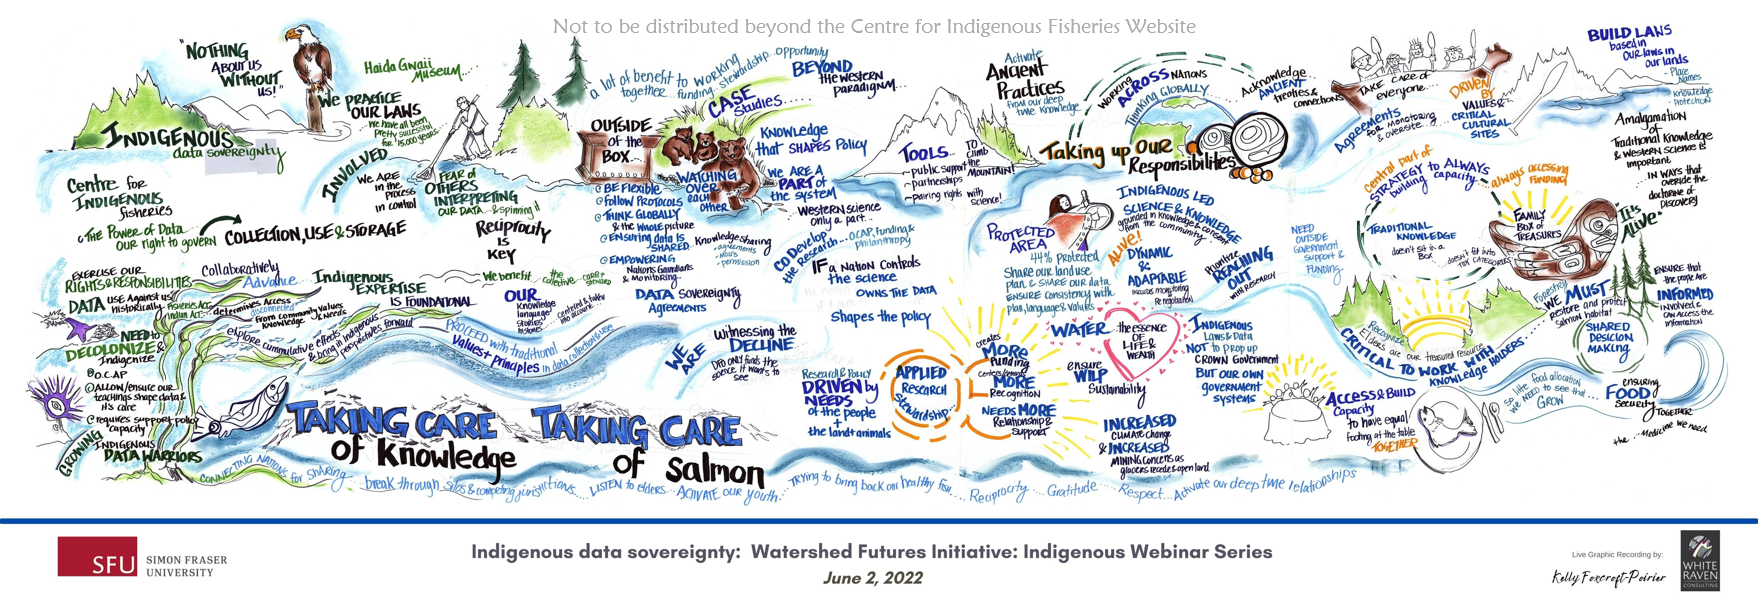 Not to be distributed beyond the Centre for Indigenous Fisheries Website
"NOTHING
ABOUT US
WITHOUT
US!"
Haida Gwaii
Museum...
WE PRACTICE
OUR LAWS
We have all been
Pretty successful
for 15,000 years
INDIGENOUS
data sovereignty
INVOLVED
WE ARE
in the
process
in control
FEAR of
OTHERS
INTERPRETING
OUR DATA & spinning it
Centre for
INDIGENOUS
fisheries
The Power of Data
OUR right to govern
COLLECTION, USE & STORAGE
Reciprocity
is
Key
EXERCISE OUR
RIGHTS & RESPONSIBILITIES
Collaboratively
Advance
Indigenous
EXPERTISE
IS FOUNDATIONAL
We benefit
the
collective
DATA USE Against us
Historically
FISHERIES ACT
Indian Act
determines Access
disconnected
from community Values
Knowledge & Needs
explore cummulative effects
& bring in Indigenous
perspectives forward
OUR
Knowledge
language
STORIES
NEED to
DECOLONIZE &
Indigenize
O.C.A.P
ALLOW/ensure our
teachings shape data &
it's care
requires support-policy
capacity
GROWING
INDIGENOUS
DATA WARRIORS
PROCEED with traditional
Values + principles in data collection & use
TAKING CARE
of Knowledge
TAKING CARE
of Salmon
CONNECTING NATIONS for SHARING
break through silos & competing jurisdictions...
LISTEN to elders...
ACTIVATE our YOUTH
TRYING to bring back our healthy fish...
Reciprocity...
Gratitude
Respect...
Activate our deep time relationships
a lot of benefit to working
together... funding, stewardship.. opportunity
BEYOND
the WESTERN
PARADIGM...
OUTSIDE
of the
BOX...
CASE
Studies....
WATCHING
OVER
each
other
KNOWLEDGE
that SHAPES Policy
WE ARE A
PART of
the system
WESTERN science
only a part...
BE Flexible
Follow PROTOCOLS
THINK GLOBALLY
& the WHOLE picture
ENSURING data is
SHARED
EMPOWERING
Nation's Guardians
& Monitoring
Knowledge sharing
- agreements
- MOU's
- permission
CO Develop
the Research
OCAP, funding &
philanthropy
IF a NATION CONTROLS
the science
OWNS THE DATA
Shapes the policy
DATA SOVEREIGNTY
Agreements
WE
ARE
WITNESSING the
DECLINE
DFO ONLY funds the
science it wants to
see
TOOLS
~public support
~partnerships
~pairing rights with
science!
TO
Climb
the
MOUNTAIN!
Activate
ANCIENT
Practices
FROM our deep
time Knowledge
Working
ACROSS NATIONS
Thinking GLOBALLY
Acknowledge
ANCIENT
treaties &
connections
Taking up OUR
Responsibilities
PROTECTED
AREA
44% Protected
Share our land use
Plan, & SHARE our data
ENSURE consistency with
plan, language & values
INDIGENOUS LED
SCIENCE & KNOWLEDGE
grounded in knowledge & consent
from the community
ALIVE!
DYNAMIC
&
ADAPTABLE
includes monitoring
Re negotiation
Prioritize
REACHING
OUT
with RESEARCH
WATER the essence
OF
LIFE &
WEALTH
ensure
WILP
Sustainability
INDIGENOUS
Laws & Data
NOT to prop up
CROWN Government
BUT OUR own
government
systems
Research & Policy
DRIVEN by
NEEDS
of the people
+
the land + animals
APPLIED
RESEARCH
Stewardship...
creates
MORE
Funding
MORE
Recognition
NEEDS MORE
Relationship &
Support
INCREASED
CLIMATE change
& INCREASED
MINING CONCERNS as
glaciers recede & open land
TAKE CARE OF
everyone...
DRIVEN
BY
VALUES &
CRITICAL
CULTURAL
SITES
Agreements
for MONITORING
& oversite...
BUILD LAWS
based in
our laws in
our lands
- Place
Names
- Knowledge
Protection
Amalgamation
of
Traditional Knowledge
& Western science is
important
... IN WAYS that
override the
doctrine of
DISCOVERY
Central part of
STRATEGY to ALWAYS
building capacity...
always accessing
FUNDING!
NEED
OUTSIDE
Government
support &
FUNDING
TRADITIONAL
KNOWLEDGE
doesn't sit in a
BOX
...doesn't fit into
TEK CATEGORIES
FAMILY
BOX of
TREASURES
"IT'S
ALIVE"
ENSURE that
the people are
INFORMED
involved &
can ACCESS the
information
Forestry
WE MUST
restore and protect
Salmon habitat
SHARED
DESICION
MAKING
Recognize
Elders are our treasured resource
CRITICAL TO WORK WITH
KNOWLEDGE HOLDERS
ACCESS & BUILD
Capacity
to have equal
Footing at the table
TOGETHER
food allocation
WE NEED to see that
GROW
ensuring
FOOD
Security
TOGETHER
the... Medicine we need
SFU
SIMON FRASER
UNIVERSITY
Indigenous data sovereignty: Watershed Futures Initiative: Indigenous Webinar Series
June 2, 2022
Live Graphic Recording by:
Kelly Foxcroft-Poirier
WHITE
RAVEN
CONSULTING